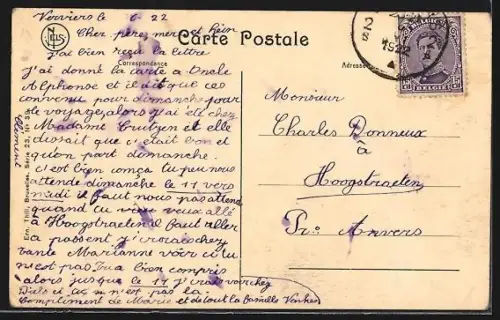 Verviers le 6.22
Cher père, mère et
j'ai bien reçu la lettre
Carte Postale
Correspondance
Adresse
j'ai donné la carte a Oncle
Alphonse et il dit que ces
convenu pour dimanche pour
le voyage, alors j'ai été chez
Madame et elle
disait que c'était bon et
qu'on part dimanche.
c'est bien comça tu peu nous
attende dimanche le 11 vers
midi il faut nous pas attend
quand tu veux allé
à Hoogstraeten il faut aller
a passent j'irorais chez
tante Marianne voir si tu
n'est pas Tu a bien compris
alors jusque le 11 j'irais voir chez
si tu n'est pas la.
Compliment de Marie et de tout la famille
Clement
Ern. Thill, Bruxelles. Série 23, No
NELS
2
8
1922
4
BELGIE
Monsieur
Charles Donneux
à
Hoogstraeten
Pr: Anvers